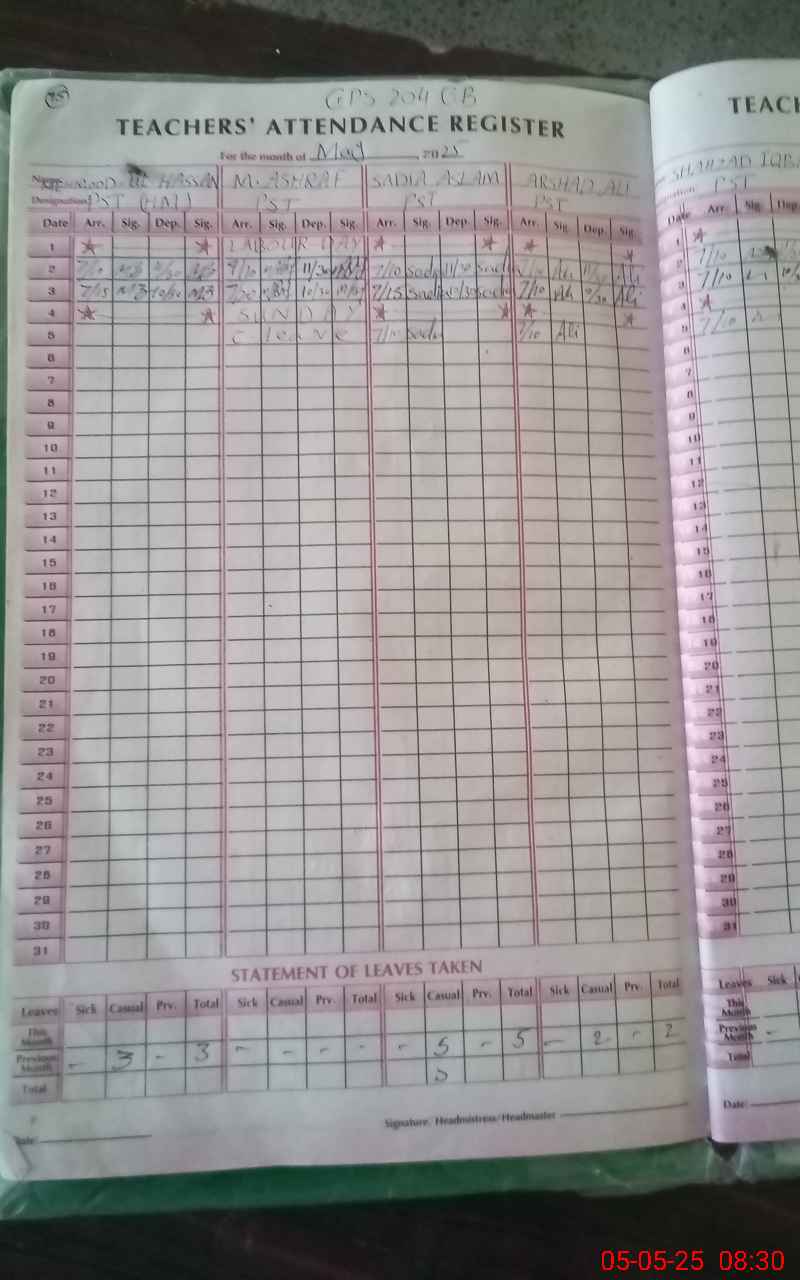 GPS 204 GB
TEACHERS' ATTENDANCE REGISTER
For the month of May, 2025
Name UL HASSAN M. ASHRAF SADIA ASLAM ARSHAD ALI
Designation PST (HM) PST PST PST
Date Arr. Sig. Dep. Sig. Arr. Sig. Dep. Sig. Arr. Sig. Dep. Sig. Arr. Sig. Dep. Sig.
1 LABOUR DAY
2 7/10 11/30 7/10 Sadia 11/30 Sadia 7/10 Ali Ali
3 7/15 10/30 7/20 10/30 7/15 Sadia Sadia 7/10 Ali Ali
4 SUNDAY
5 C leave 7/10 Sadia 7/10 Ali
6
7
8
9
10
11
12
13
14
15
16
17
18
19
20
21
22
23
24
25
26
27
28
29
30
31
STATEMENT OF LEAVES TAKEN
Leaves Sick Casual Prv. Total Sick Casual Prv. Total Sick Casual Prv. Total Sick Casual Prv. Total
This Month
Previous Month - 3 - 3 - - - - - 5 - 5 - 2 - 2
Total 5
Signature. Headmistress/Headmaster
Date:
TEACH
SHAHZAD IQBA
PST
Date Arr. Sig. Dep.
1
2 7/10
3 7/10
4
5 7/10
6
7
8
9
10
11
12
13
14
15
16
17
18
19
20
21
22
23
24
25
26
27
28
29
30
31
Leaves Sick
This Month
Previous Month -
Total
Date:
05-05-25 08:30